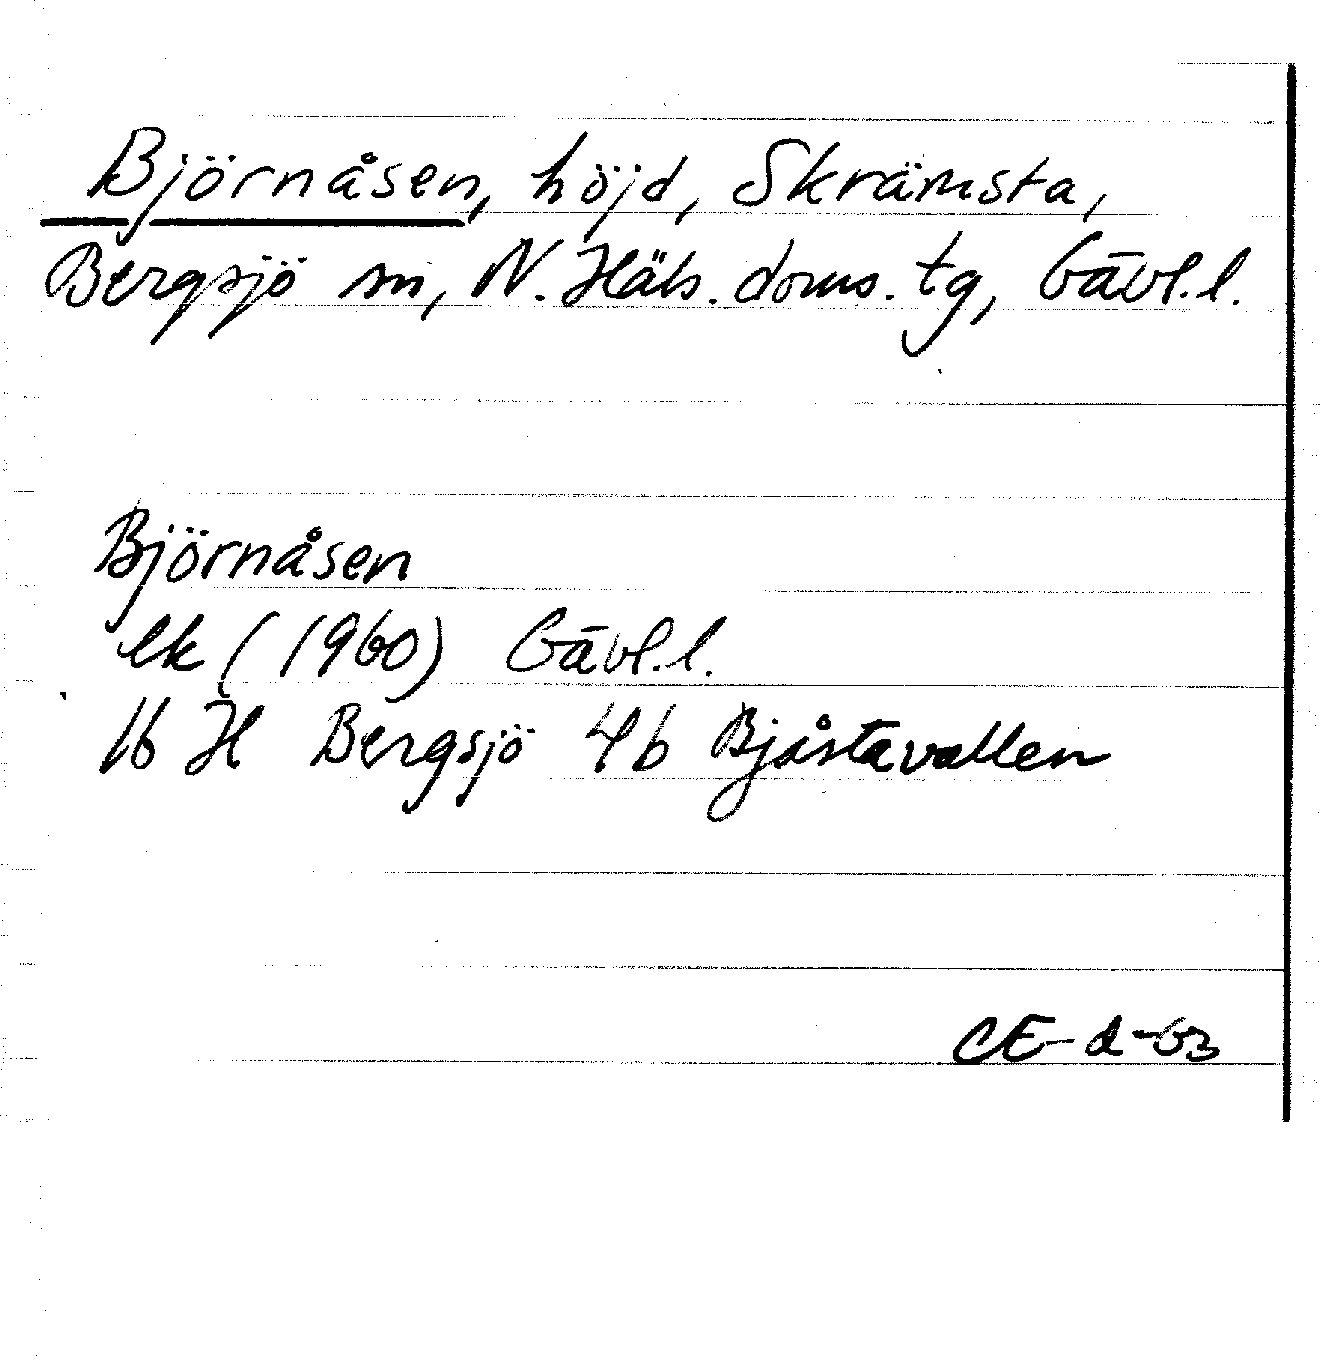 Björnåsen, höjd, Skrämsta,
Bergsjö sn, N. Häls. doms. tg, Gävl.l.
Björnåsen
ek (1960) Gävl.l.
16 H Bergsjö 4b Bjåstavallen
CE-d-63